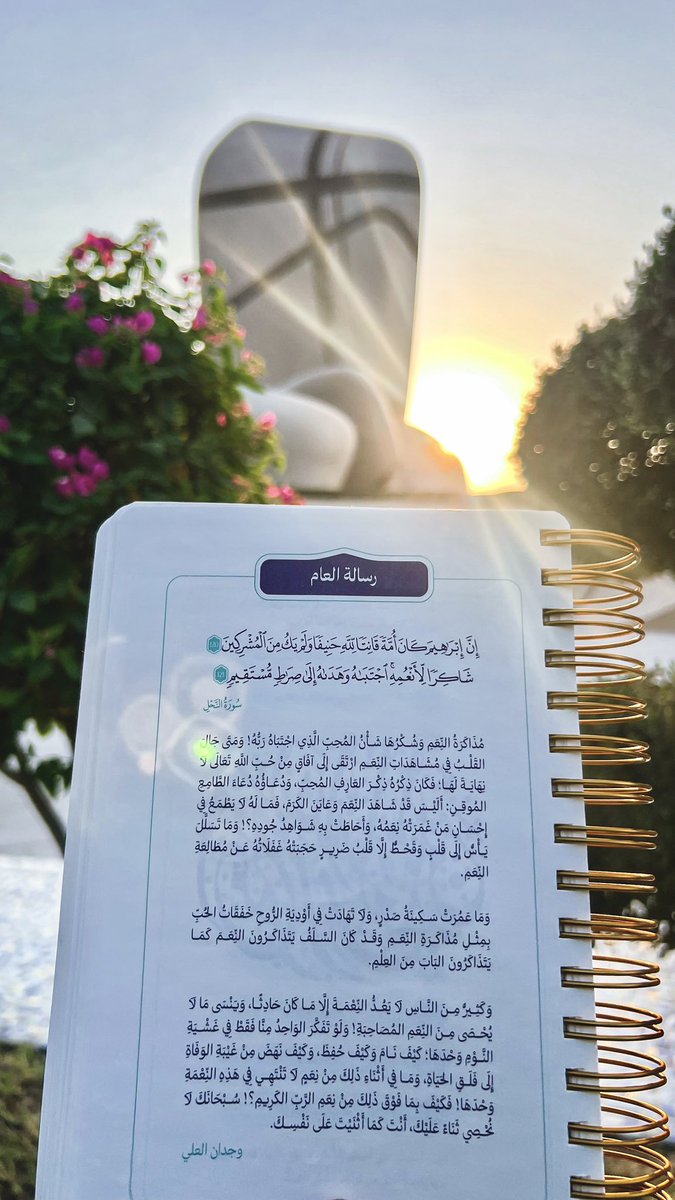 رسالة العام
إِنَّ إِبْرَٰهِيمَ كَانَ أُمَّةً قَانِتًا لِّلَّهِ حَنِيفًا وَلَمْ يَكُ مِنَ ٱلْمُشْرِكِينَ ١٢٠
شَاكِرًا لِّأَنْعُمِهِ ۚ ٱجْتَبَىٰهُ وَهَدَىٰهُ إِلَىٰ صِرَٰطٍ مُّسْتَقِيمٍ ١٢١
سُورَةُ النَّحْلِ
مُذَاكَرَةُ النِّعَمِ وَشُكْرُهَا شَأْنُ المُحِبِّ الَّذِي اجْتَبَاهُ رَبُّهُ! وَمَتَى جَالَ
القَلْبُ فِي مُشَاهَدَاتِ النِّعَمِ ارْتَقَى إِلَى آفَاقٍ مِنْ حُبِّ اللَّهِ تَعَالَى لَا
نِهَايَةَ لَهَا؛ فَكَانَ ذِكْرُهُ ذِكْرَ العَارِفِ المُحِبِّ، وَدُعَاؤُهُ دُعَاءَ الطَّامِعِ
المُوقِنِ؛ أَلَيْسَ قَدْ شَاهَدَ النِّعَمَ وَعَايَنَ الكَرَمَ، فَمَا لَهُ لَا يَطْمَعُ فِي
إِحْسَانِ مَنْ غَمَرَتْهُ نِعَمُهُ، وَأَحَاطَتْ بِهِ شَوَاهِدُ جُودِهِ؟! وَمَا تَسَلَّلَ
يَأْسٌ إِلَى قَلْبٍ وَقَحْطٌ إِلَّا قَلْبُ ضَرِيرٍ حَجَبَتْهُ غَفَلَاتُهُ عَنْ مُطَالَعَةِ
النِّعَمِ.
وَمَا عَمُرَتْ سَكِينَةُ صَدْرٍ، وَلَا تَهَادَتْ فِي أَوْدِيَةِ الرُّوحِ خَفَقَاتُ الحُبِّ
بِمِثْلِ مُذَاكَرَةِ النِّعَمِ وَقَدْ كَانَ السَّلَفُ يَتَذَاكَرُونَ النِّعَمَ كَمَا
يَتَذَاكَرُونَ البَابَ مِنَ العِلْمِ.
وَكَثِيرٌ مِنَ النَّاسِ لَا يَعُدُّ النِّعْمَةَ إِلَّا مَا كَانَ حَادِثًا، وَيَنْسَى مَا لَا
يُحْصَى مِنَ النِّعَمِ المُصَاحِبَةِ! وَلَوْ تَفَكَّرَ الوَاحِدُ مِنَّا فَقَطْ فِي غَشْيَةِ
النَّوْمِ وَحْدَهَا؛ كَيْفَ نَامَ وَكَيْفَ حُفِظَ، وَكَيْفَ نَهَضَ مِنْ غَيْبَةِ الوَفَاةِ
إِلَى فَلَقِ الحَيَاةِ، وَمَا فِي أَثْنَاءِ ذَلِكَ مِنْ نِعَمٍ لَا تَنْتَهِي فِي هَذِهِ النِّعْمَةِ
وَحْدَهَا! فَكَيْفَ بِمَا فَوْقَ ذَلِكَ مِنْ نِعَمِ الرَّبِّ الكَرِيمِ؟! سُبْحَانَكَ لَا
نُحْصِي ثَنَاءً عَلَيْكَ، أَنْتَ كَمَا أَثْنَيْتَ عَلَى نَفْسِكَ.
وجدان العلي